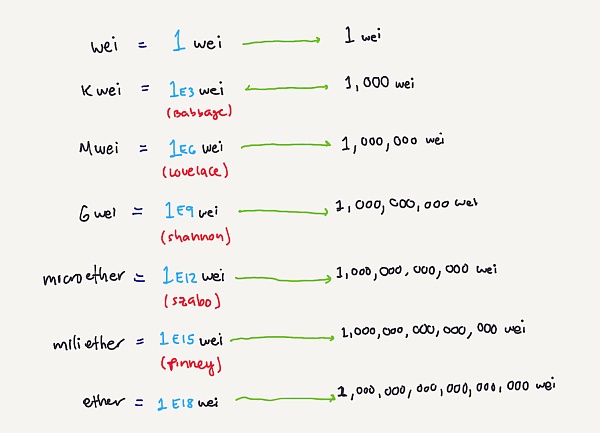 wei = 1 wei → 1 wei
Kwei = 1E3 wei ↔ 1,000 wei
(Babbage)
Mwei = 1E6 wei → 1,000,000 wei
(lovelace)
Gwei = 1E9 wei → 1,000,000,000 wei
(shannon)
microether = 1E12 wei → 1,000,000,000,000 wei
(szabo)
milliether = 1E15 wei → 1,000,000,000,000,000 wei
(finney)
ether = 1E18 wei → 1,000,000,000,000,000,000 wei